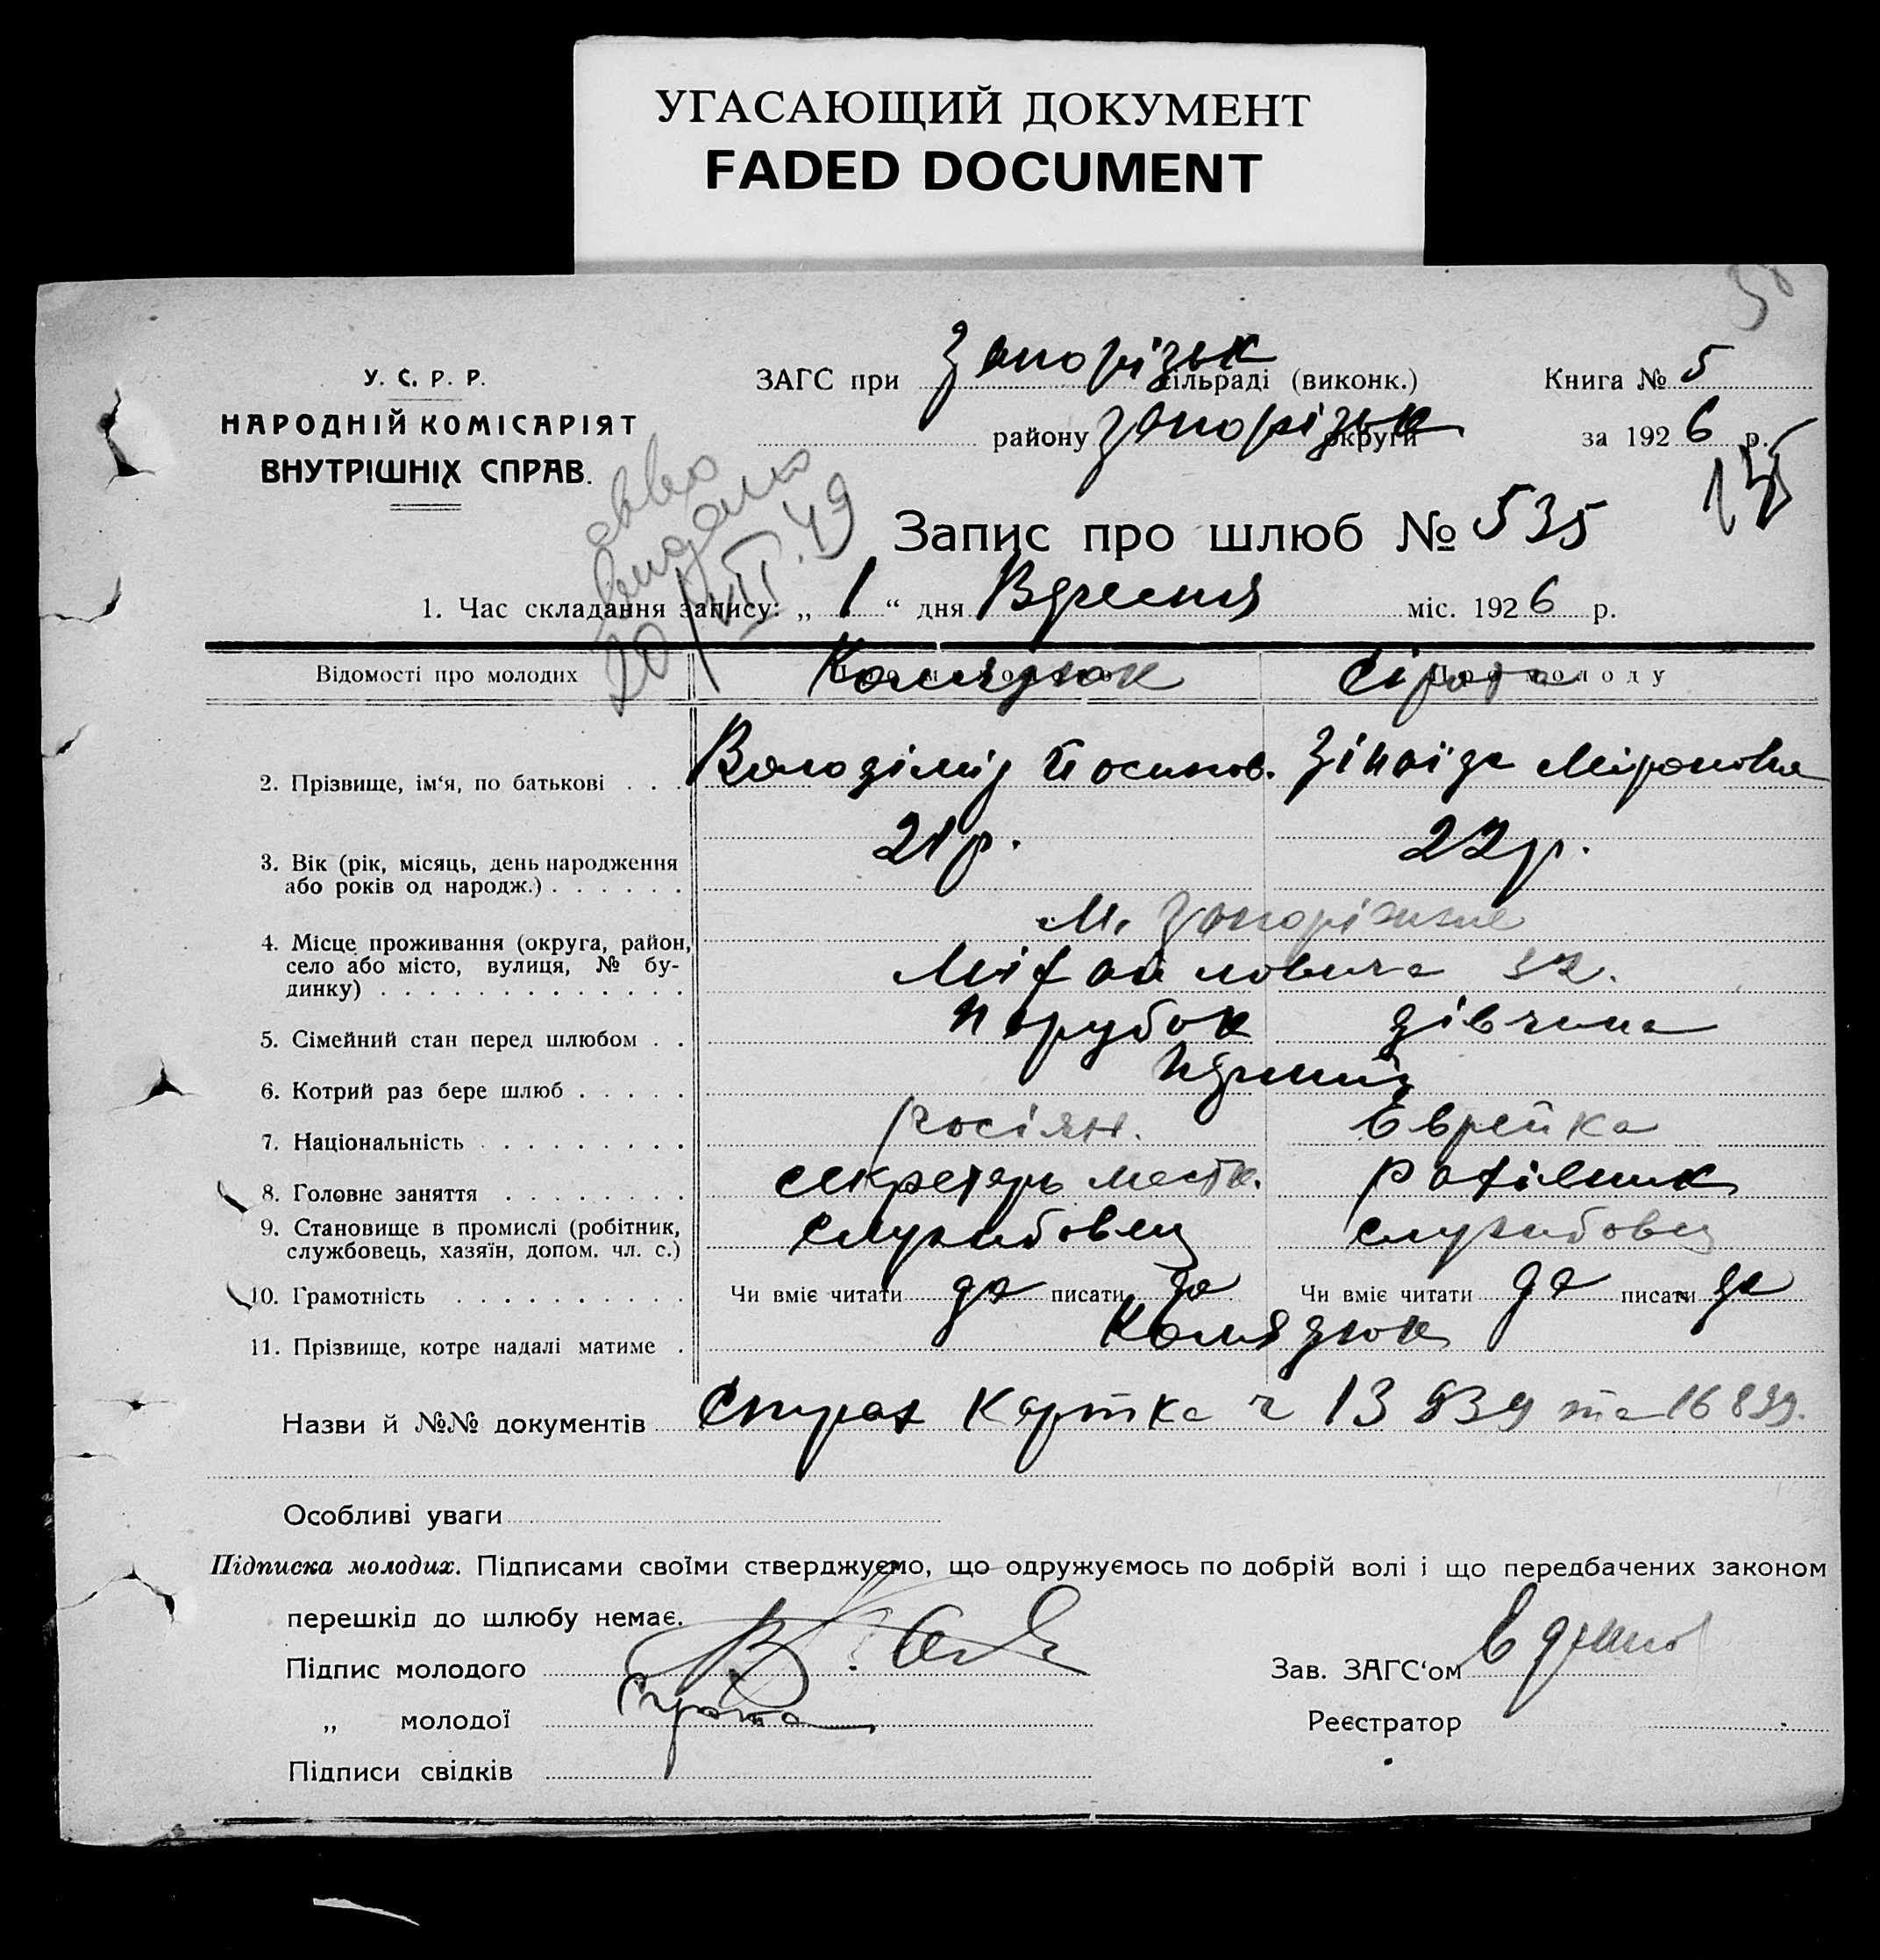 УГАСАЮЩИЙ ДОКУМЕНТ
FADED DOCUMENT
У. С. Р. Р.
НАРОДНІЙ КОМІСАРІЯТ
ВНУТРІШНІХ СПРАВ.
ЗАГС при Запорізьк сільраді (виконк.)
району Запорізьк округи
Книга № 5
за 1926 р.
видано
20/VIII.49
Запис про шлюб № 535
1. Час складання запису: „ 1 “ дня Вересня міс. 1926 р.
Відомості про молодих Колядюк Сірота Про молоду
2. Прізвище, ім'я, по батькові . . . Володімір Йосипов. Зінаїда Міроновна
3. Вік (рік, місяць, день народження 21 р. 22 р.
або років од народж.) . . . . . .
4. Місце проживання (округа, район, М. Запоріжжє
село або місто, вулиця, № бу- Міхайловича 32.
динку) . . . . . . . . . . . . .
5. Сімейний стан перед шлюбом . . Парубок дівчина
6. Котрий раз бере шлюб . . . . . Перший
7. Національність . . . . . . . . . росіян. Еврейка
8. Головне заняття . . . . . . . . секретарь местк. рахівник
9. Становище в промислі (робітник, службовец службовец
службовець, хазяїн, допом. чл. с.)
10. Грамотність . . . . . . . . . . Чи вміє читати да писати да Чи вміє читати да писати да
11. Прізвище, котре надалі матиме . Колядюк
Назви й №№ документів Страх Картка ч 13 839 та 16839.
Особливі уваги
Підписка молодих. Підписами своїми стверджуємо, що одружуємось по добрій волі і що передбачених законом
перешкід до шлюбу немає.
Підпис молодого
Зав. ЗАГС'ом
„ молодої Сирота
Реєстратор
Підписи свідків